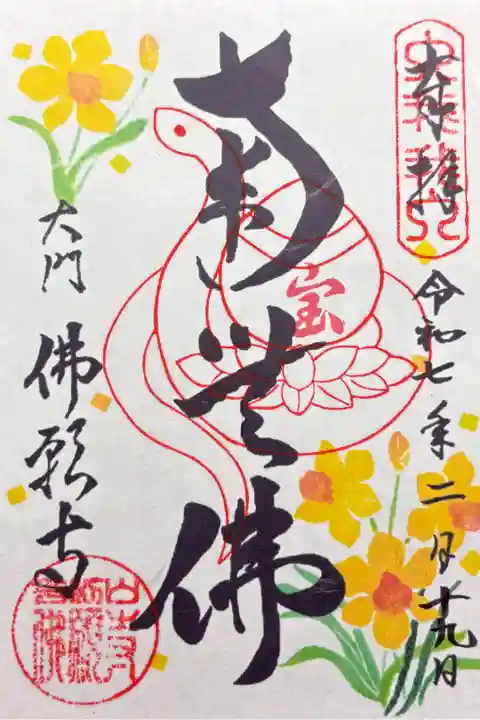 奉拝
令和七年二月十九日
南無佛
宝
大門
佛願寺